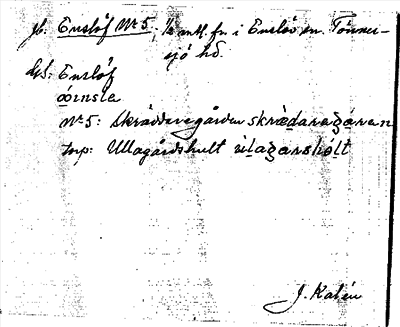 jb: Enslöf No 5, ½ mtl. fr. i Enslöv sn. Tönner-
sjö hd.
Uppsl.: Enslöf
No 5: Skräddaregården skrædaragåren
torp: Ullagårdshult ùlagarshólt
J. Kalén